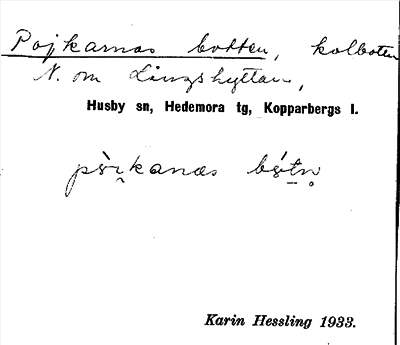 Pojkarnas botten, kolboten
N. om Lingshyttan,
Husby sn, Hedemora tg, Kopparbergs l.
pòi̯kanas bótn̥
Karin Hessling 1933.